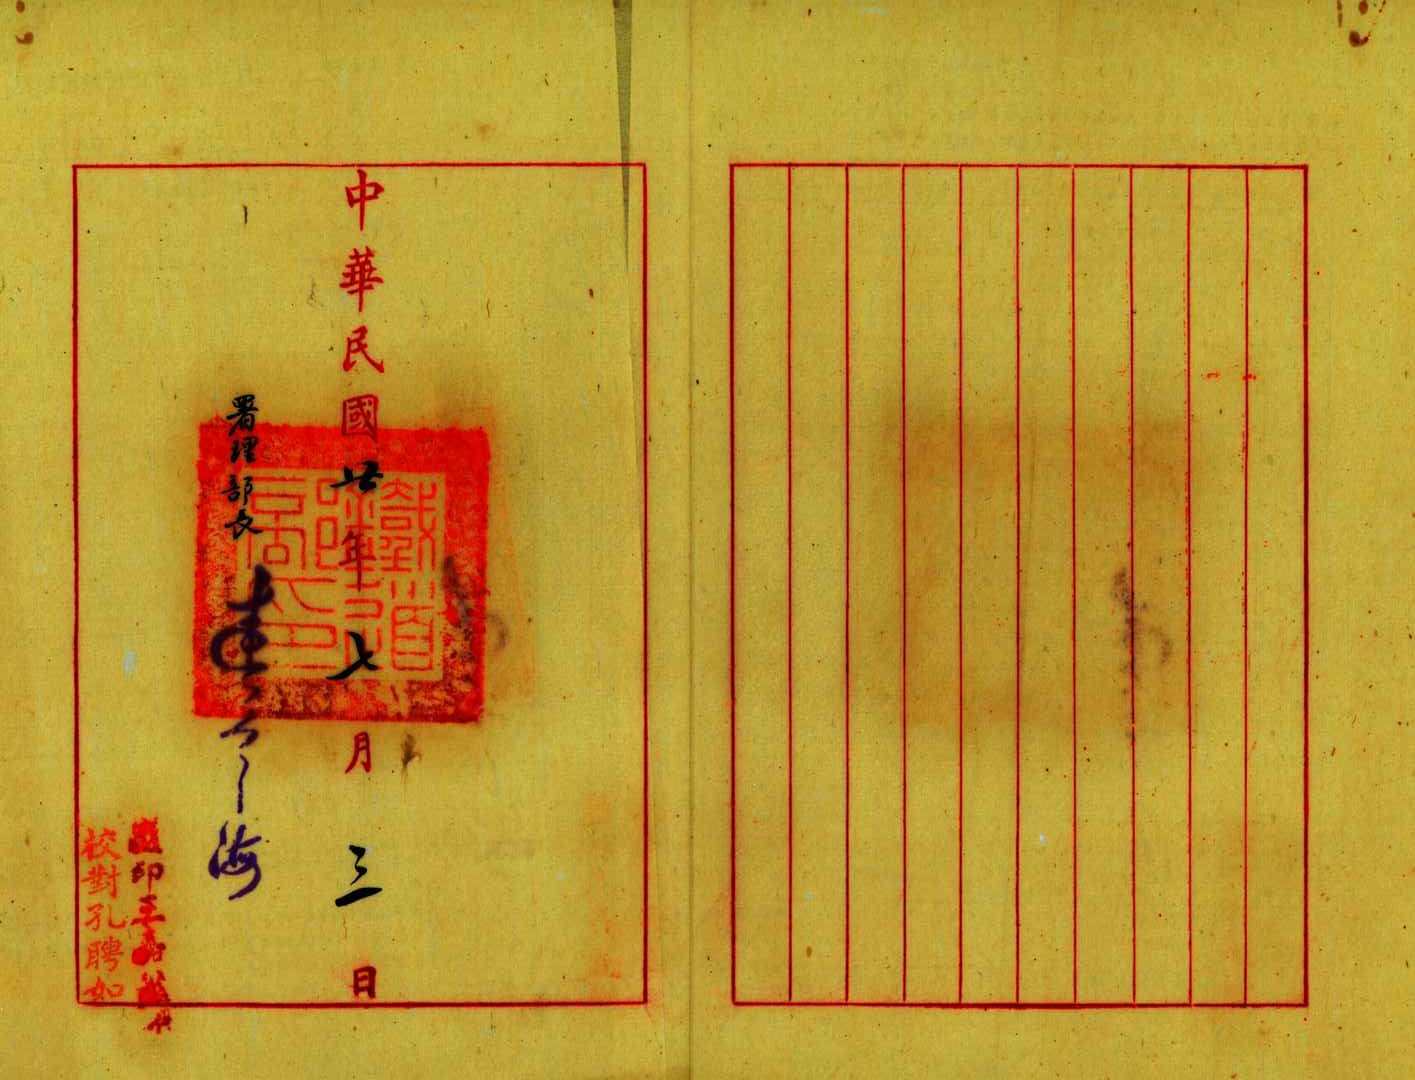 鐵道部印
中華民國廿年七月三日
署理部長 連聲海
監印王
校對孔聘如